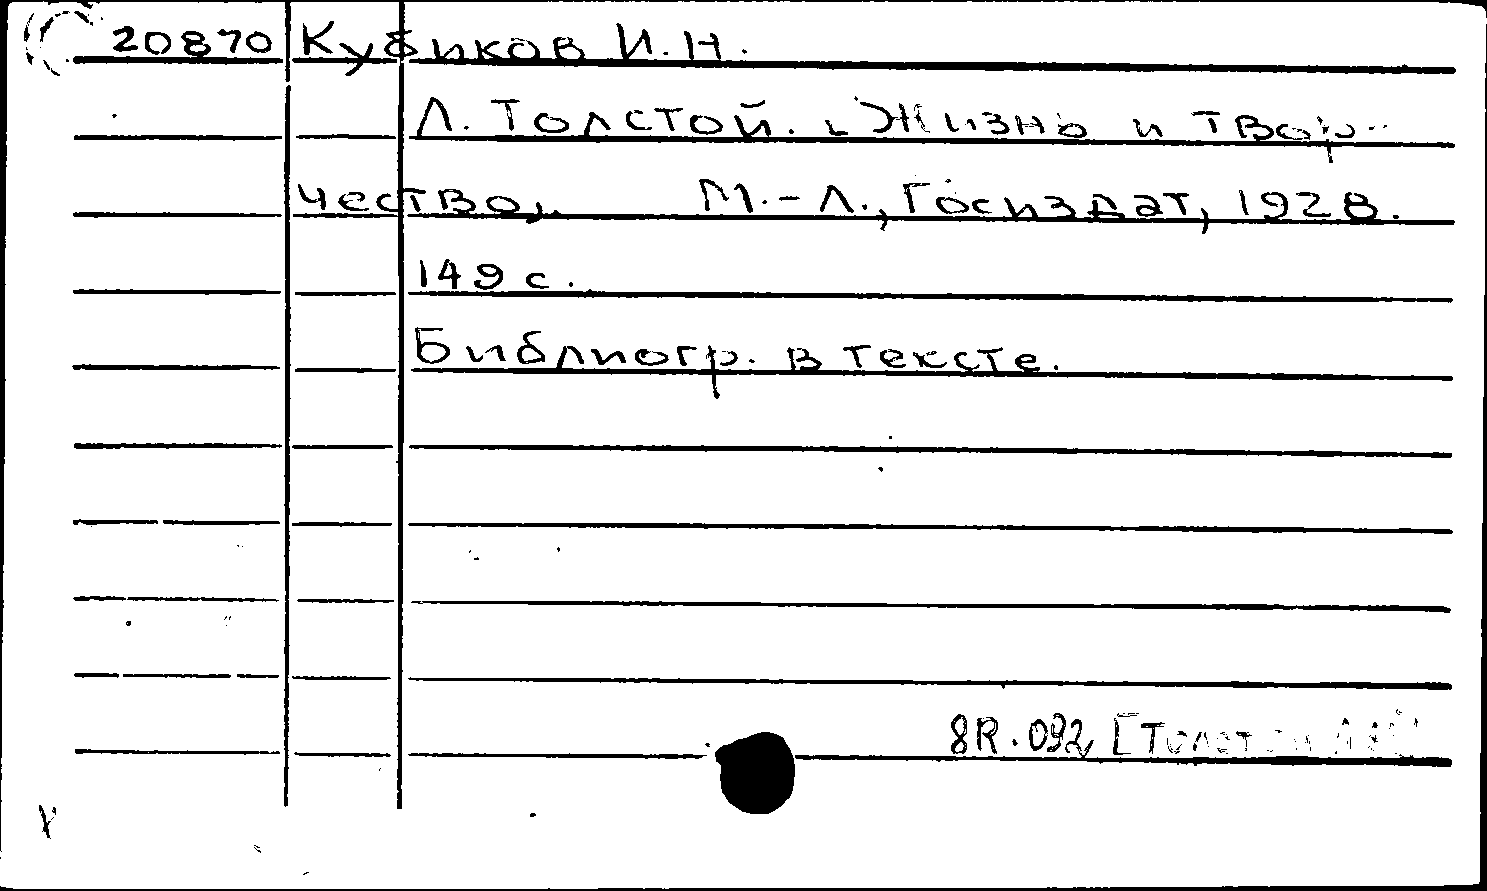 20870 Кубиков И.Н.
Л. Толстой. Жизнь и твор-
чество. М.-Л., Госиздат, 1928.
149 с.
Библиогр. в тексте.
8R.092 [Толстой